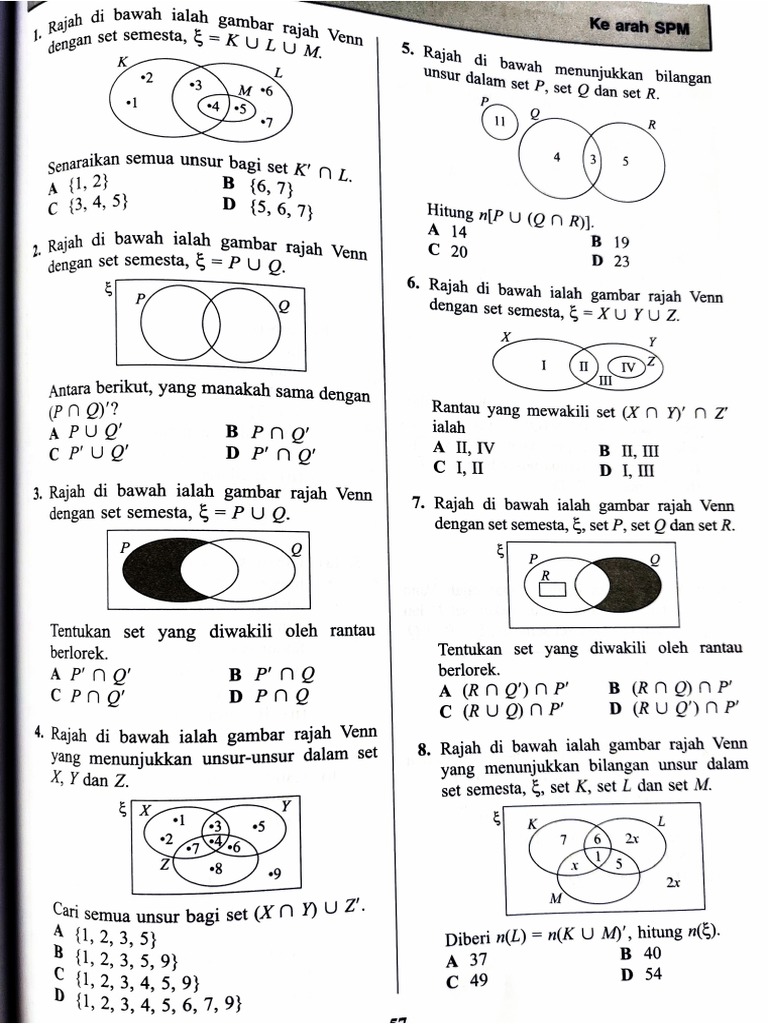 Ke arah SPM
1. Rajah di bawah ialah gambar rajah Venn
dengan set semesta, ξ = K ∪ L ∪ M.
K
L
•2
•3
M •6
•1
•4 •5
•7
Senaraikan semua unsur bagi set K′ ∩ L.
A {1, 2}
B {6, 7}
C {3, 4, 5}
D {5, 6, 7}
2. Rajah di bawah ialah gambar rajah Venn
dengan set semesta, ξ = P ∪ Q.
ξ
P
Q
Antara berikut, yang manakah sama dengan
(P ∩ Q)′?
A P ∪ Q′
B P ∩ Q′
C P′ ∪ Q′
D P′ ∩ Q′
3. Rajah di bawah ialah gambar rajah Venn
dengan set semesta, ξ = P ∪ Q.
P
Q
Tentukan set yang diwakili oleh rantau
berlorek.
A P′ ∩ Q′
B P′ ∩ Q
C P ∩ Q′
D P ∩ Q
4. Rajah di bawah ialah gambar rajah Venn
yang menunjukkan unsur-unsur dalam set
X, Y dan Z.
ξ X
Y
•1
•3
•5
•2
•4
•7
•6
Z
•8
•9
Cari semua unsur bagi set (X ∩ Y) ∪ Z′.
A {1, 2, 3, 5}
B {1, 2, 3, 5, 9}
C {1, 2, 3, 4, 5, 9}
D {1, 2, 3, 4, 5, 6, 7, 9}
5. Rajah di bawah menunjukkan bilangan
unsur dalam set P, set Q dan set R.
P
11
Q
R
4
3
5
Hitung n[P ∪ (Q ∩ R)].
A 14
B 19
C 20
D 23
6. Rajah di bawah ialah gambar rajah Venn
dengan set semesta, ξ = X ∪ Y ∪ Z.
X
Y
I
II
IV
Z
III
Rantau yang mewakili set (X ∩ Y)′ ∩ Z′
ialah
A II, IV
B II, III
C I, II
D I, III
7. Rajah di bawah ialah gambar rajah Venn
dengan set semesta, ξ, set P, set Q dan set R.
ξ
P
Q
R
Tentukan set yang diwakili oleh rantau
berlorek.
A (R ∩ Q′) ∩ P′
B (R ∩ Q) ∩ P′
C (R ∪ Q) ∩ P′
D (R ∪ Q′) ∩ P′
8. Rajah di bawah ialah gambar rajah Venn
yang menunjukkan bilangan unsur dalam
set semesta, ξ, set K, set L dan set M.
ξ
K
L
7
6
2x
1
x
5
2x
M
Diberi n(L) = n(K ∪ M)′, hitung n(ξ).
A 37
B 40
C 49
D 54
57